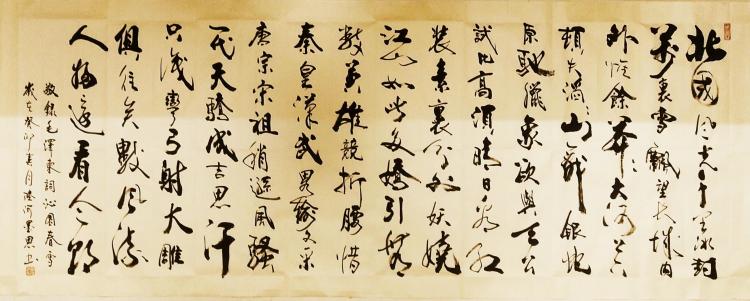 北國風光千里冰封
萬裏雪飄望長城內
外惟餘莽々大河上下
頓失滔々山舞銀蛇
原馳蠟象欲與天公
試比高須晴日看紅
裝素裹分外妖嬈
江山如此多嬌引無
數英雄競折腰惜
秦皇漢武略輸文采
唐宗宋祖稍遜風騷
一代天驕成吉思汗
只識彎弓射大雕
俱往矣數風流
人物還看今朝
敬錄毛澤東詞沁園春雪
歲在癸卯春月墨思书